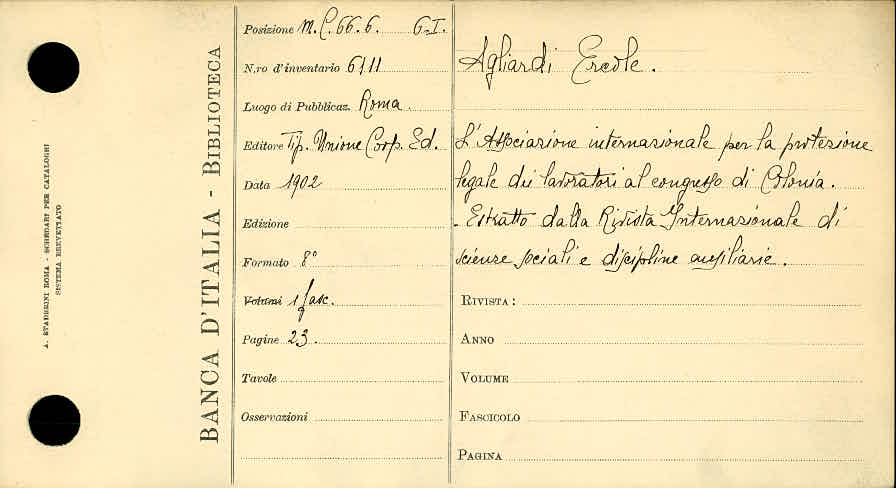 A. STADERINI ROMA - SCHEDARI PER CATALOGHI
SISTEMA BREVETTATO
BANCA D'ITALIA - BIBLIOTECA
Posizione M. C. 66. 6. G-I.
N.ro d'inventario 6111
Luogo di Pubblicaz. Roma.
Editore Tip. Unione Coop. Ed.
Data 1902
Edizione
Formato 8°
Volumi 1 fasc.
Pagine 23.
Tavole
Osservazioni
Agliardi Ercole.
L'Associazione internazionale per la protezione
legale dei lavoratori al congresso di Colonia.
- Estratto dalla Rivista Internazionale di
scienze sociali e discipline ausiliarie.
RIVISTA:
ANNO
VOLUME
FASCICOLO
PAGINA